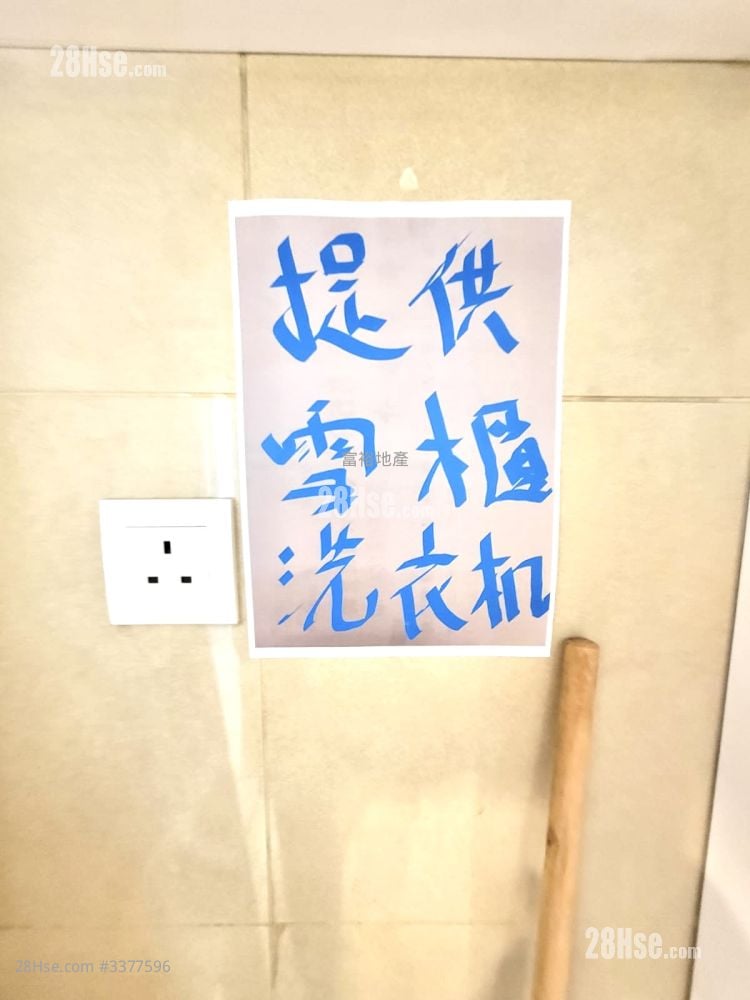 28Hse.com
提供
雪櫃
富裕地產
28Hse.com
洗衣机
28Hse.com
28Hse.com #3377596